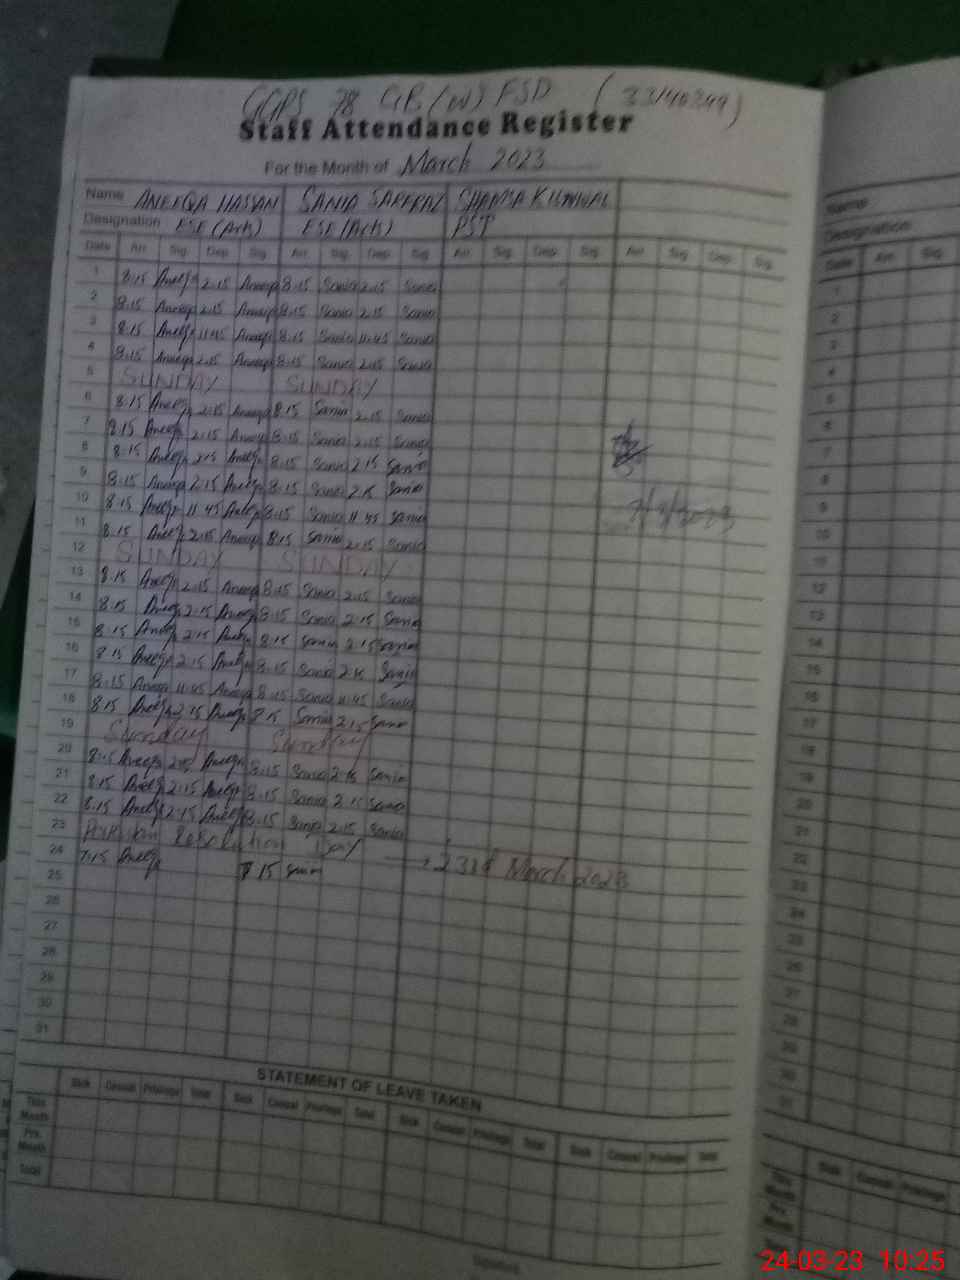 GGPS 78 GB (W) FSD (33140349)
Staff Attendance Register
For the Month of March 2023
Name ANEEQA HASSAN SANIA SARFRAZ SHAMSA KANWAL
Designation ESE (Arts) ESE (Arts) PST
Date Arr. Sig. Dep. Sig. Arr. Sig. Dep. Sig. Arr. Sig. Dep. Sig. Arr. Sig. Dep. Sig.
1 8:15 Aneeqa 2:15 Aneeqa 8:15 Sania 2:15 Sania
2 8:15 Aneeqa 2:15 Aneeqa 8:15 Sania 2:15 Sania
3 8:15 Aneeqa 11:45 Aneeqa 8:15 Sania 11:45 Sania
4 8:15 Aneeqa 2:15 Aneeqa 8:15 Sania 2:15 Sania
5 SUNDAY SUNDAY
6 8:15 Aneeqa 2:15 Aneeqa 8:15 Sania 2:15 Sania
7 8:15 Aneeqa 2:15 Aneeqa 8:15 Sania 2:15 Sania
8 8:15 Aneeqa 2:15 Aneeqa 8:15 Sania 2:15 Sania
9 8:15 Aneeqa 2:15 Aneeqa 8:15 Sania 2:15 Sania
10 8:15 Aneeqa 11:45 Aneeqa 8:15 Sania 11:45 Sania
11 8:15 Aneeqa 2:15 Aneeqa 8:15 Sania 2:15 Sania
12 SUNDAY SUNDAY
13 8:15 Aneeqa 2:15 Aneeqa 8:15 Sania 2:15 Sania
14 8:15 Aneeqa 2:15 Aneeqa 8:15 Sania 2:15 Sania
15 8:15 Aneeqa 2:15 Aneeqa 8:15 Sania 2:15 Sania
16 8:15 Aneeqa 2:15 Aneeqa 8:15 Sania 2:15 Sania
17 8:15 Aneeqa 11:45 Aneeqa 8:15 Sania 11:45 Sania
18 8:15 Aneeqa 2:15 Aneeqa 8:15 Sania 2:15 Sania
19 Sunday Sunday
20 8:15 Aneeqa 2:15 Aneeqa 8:15 Sania 2:15 Sania
21 8:15 Aneeqa 2:15 Aneeqa 8:15 Sania 2:15 Sania
22 8:15 Aneeqa 2:15 Aneeqa 8:15 Sania 2:15 Sania
23 Pakistan Resolution Day → 23rd March 2023
24 7:15 Aneeqa 7:15 Sania
25
26
27
28
29
30
31
STATEMENT OF LEAVE TAKEN
Sick Casual Privilege Total Sick Casual Privilege Total Sick Casual Privilege Total Sick Casual Privilege Total
This Month
Prv. Month
Total
24-03-23 10:25